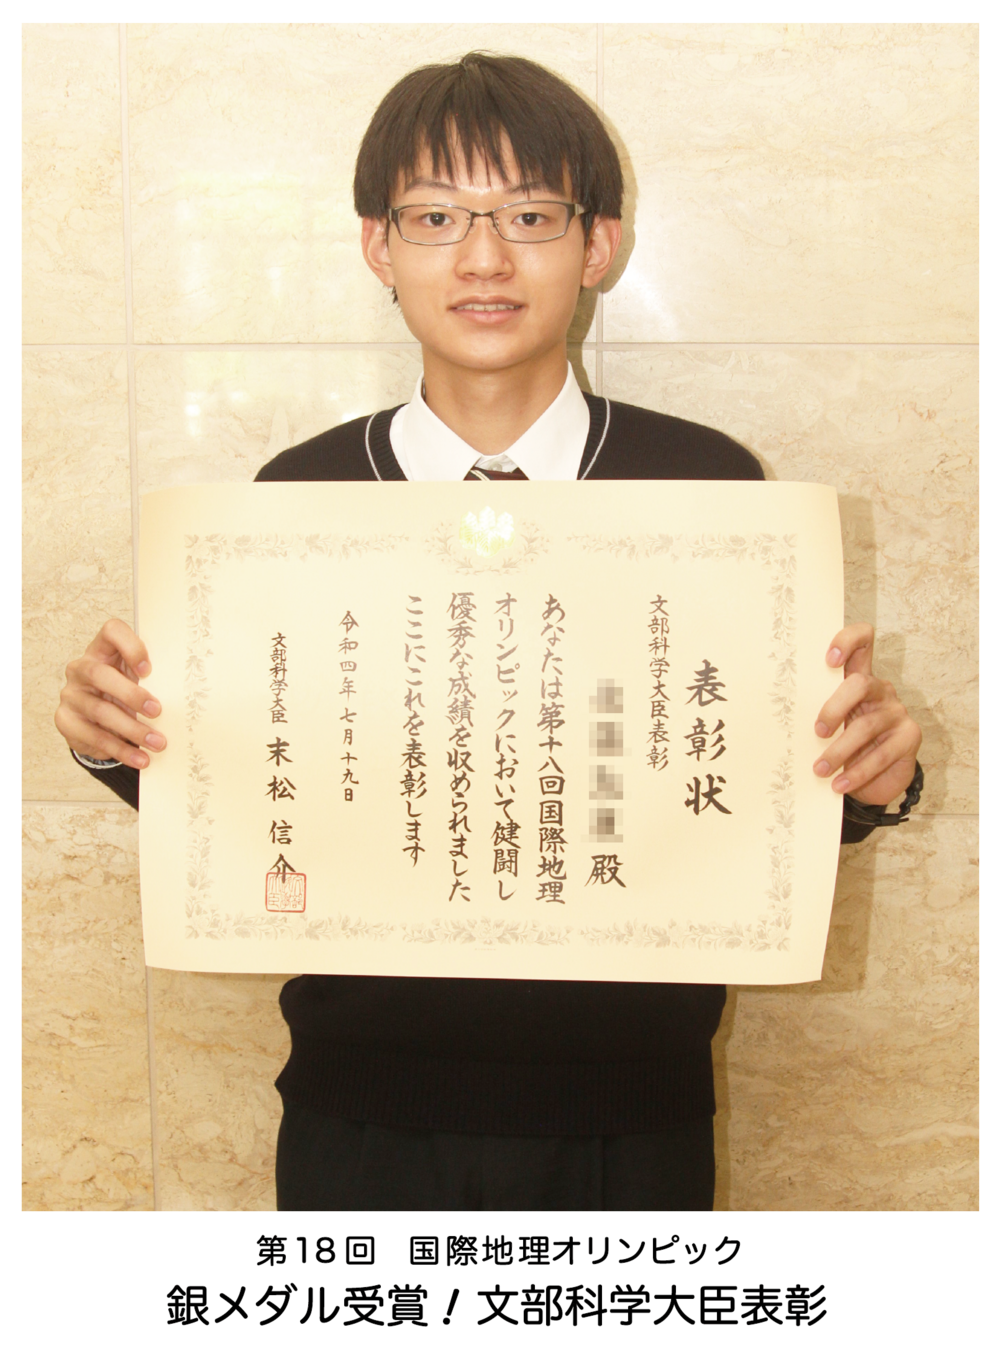 表彰状
文部科学大臣表彰
殿
あなたは第十八回国際地理
オリンピックにおいて健闘し
優秀な成績を収められました
ここにこれを表彰します
令和四年七月十九日
文部科学大臣 末松信介
第18回 国際地理オリンピック
銀メダル受賞!文部科学大臣表彰